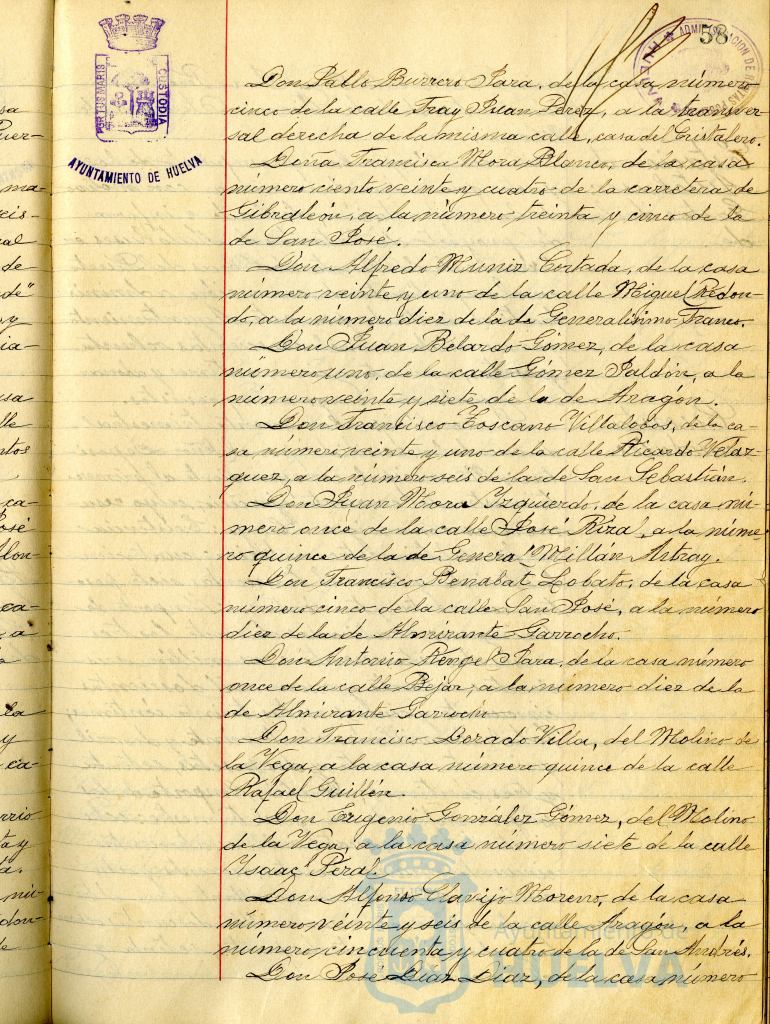 58
PORTUS MARIS
CUSTODIA
AYUNTAMIENTO DE HUELVA
ADMINISTRACION DE RENTAS
HUELVA
Don Pablo Burrero Para, de la casa número
cinco de la calle Fray Juan Perez, a la transver-
sal derecha de la misma calle, casa del Cristalero.
Doña Francisca Mora Blanco, de la casa
número ciento veinte y cuatro de la carretera de
Gibraleón, a la número treinta y cinco de la
de San José.
Don Alfredo Muniz Cortada, de la casa
número veinte y uno de la calle Miguel Redon-
do, a la número diez de la de Generalísimo Franco.
Don Juan Belardo Gómez, de la casa
número uno, de la calle Gómez Jaldón, a la
número veinte y siete de la de Aragón.
Don Francisco Toscano Villalobos, de la ca-
sa número veinte y uno de la calle Ricardo Velaz-
quez, a la número seis de la de San Sebastián.
Don Juan Mora Izquierdo, de la casa nú-
mero once de la calle José Rizal, a la núme-
ro quince de la de General Millán Astray.
Don Francisco Benabat Lobato, de la casa
número cinco de la calle San José, a la número
diez de la de Almirante Garrocho.
Don Antonio Rengel Para, de la casa número
once de la calle Bejar, a la número diez de la
de Almirante Garrocho
Don Francisco Dorado Villa, del Molino de
la Vega, a la casa numero quince de la calle
Rafael Guillén.
Don Eugenio González Gómez, del Molino
de la Vega, a la casa número siete de la calle
Isaac Peral.
Don Alfonso Clavijo Moreno, de la casa
número veinte y seis de la calle Aragón, a la
numero cincuenta y cuatro de la de San Andrés.
Don José Diaz Diaz, de la casa número
Ayuntamiento de
HUELVA